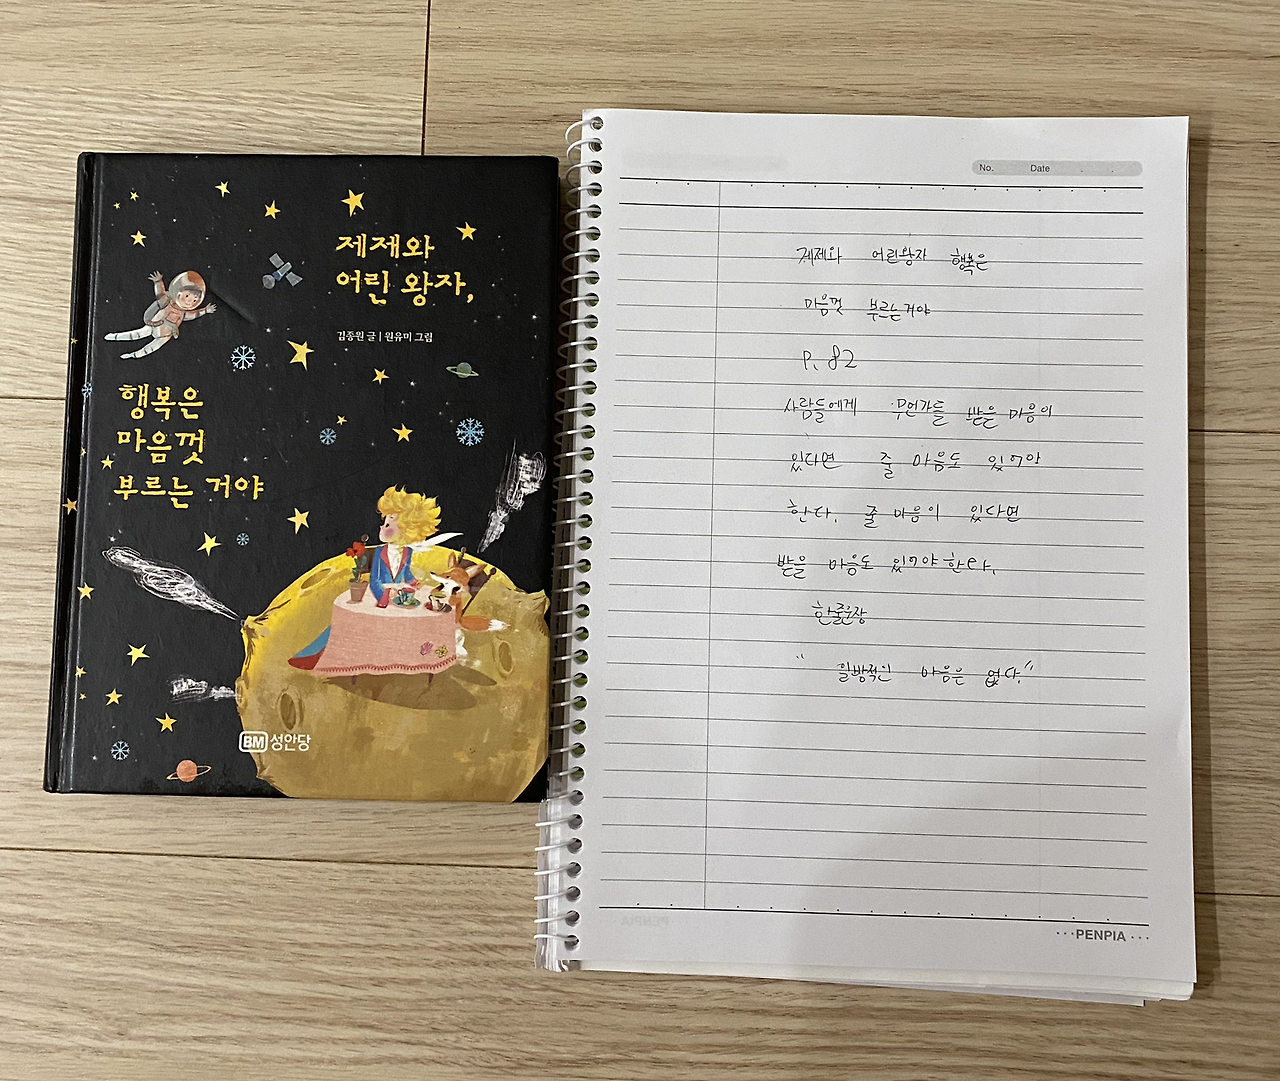 제제와
어린 왕자,
김종원 글 | 원유미 그림
행복은
마음껏
부르는 거야
BM 성안당
No. Date
제제와 어린왕자 행복은
마음껏 부르는거야
P. 82
사람들에게 무언가를 받을 마음이
있다면 줄 마음도 있어야
한다. 줄 마음이 있다면
받을 마음도 있어야한다.
한줄문장
" 일방적인 마음은 없다."
···PENPIA···